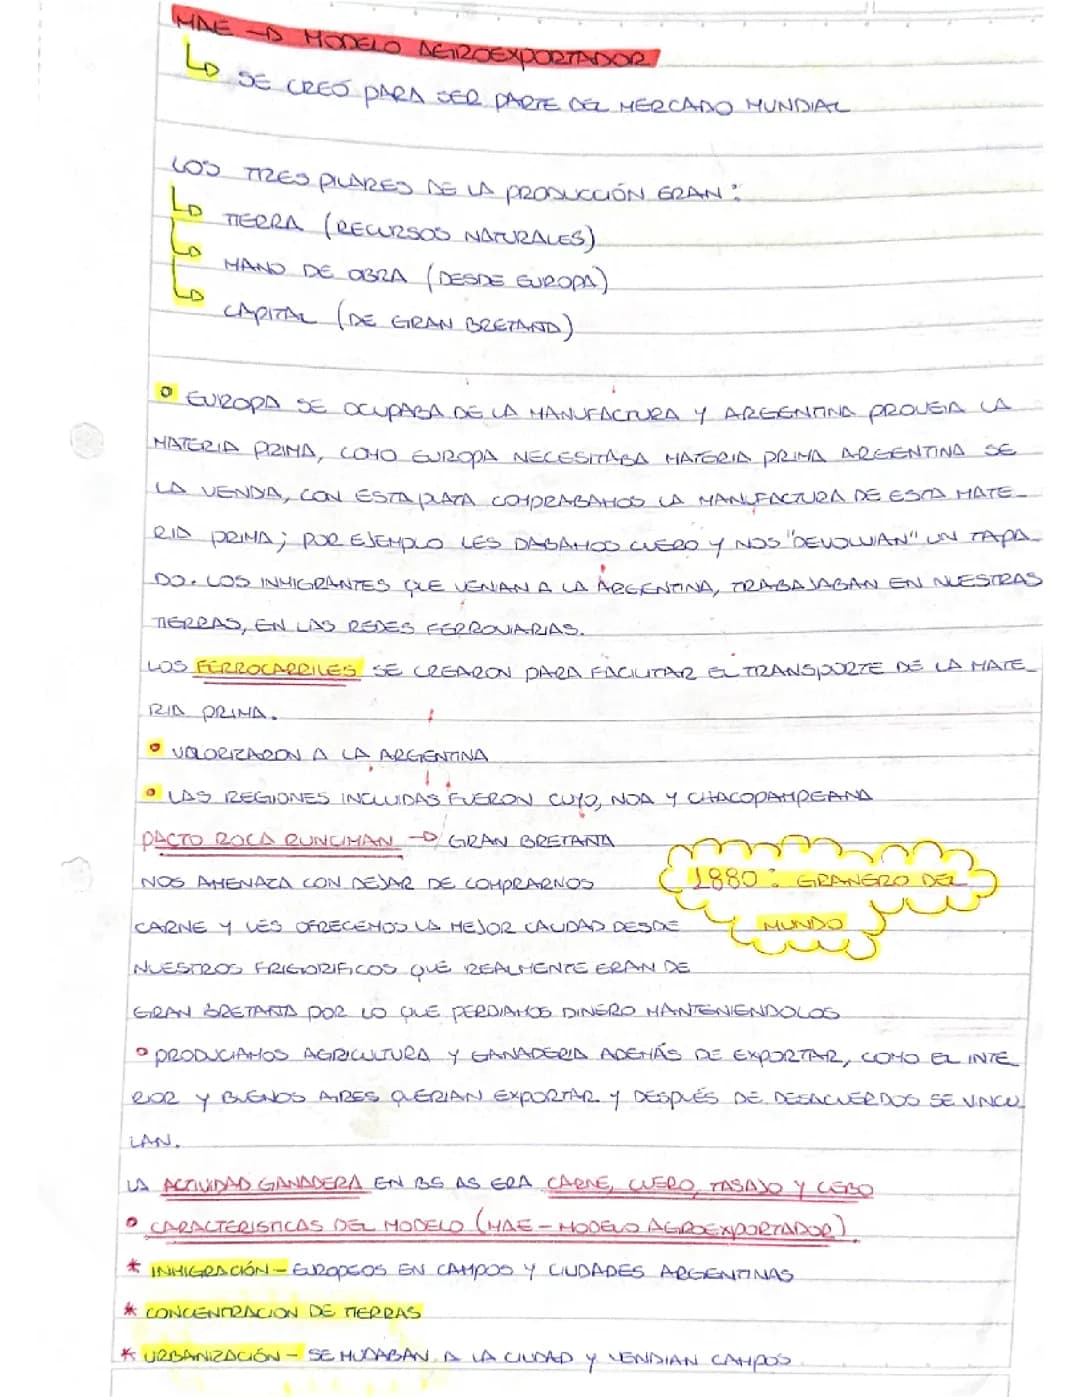 MAE → MODELO AGROEXPORTADOR
↳ SE CREÓ PARA SER PARTE DEL MERCADO MUNDIAL
LOS TRES PILARES DE LA PRODUCCIÓN ERAN:
↳ TIERRA (RECURSOS NATURALES)
↳ MANO DE OBRA (DESDE EUROPA)
↳ CAPITAL (DE GRAN BRETAÑA)
° EUROPA SE OCUPABA DE LA MANUFACTURA Y ARGENTINA PROVEIA LA
MATERIA PRIMA, COMO EUROPA NECESITABA MATERIA PRIMA ARGENTINA SE
LA VENDIA, CON ESTA PLATA COMPRABAMOS LA MANUFACTURA DE ESTA MATE-
RIA PRIMA; POR EJEMPLO LES DABAMOS CUERO Y NOS "DEVOLVIAN" UN TAPA-
DO. LOS INMIGRANTES QUE VENIAN A LA ARGENTINA, TRABAJABAN EN NUESTRAS
TIERRAS, EN LAS REDES FERROVIARIAS.
LOS FERROCARRILES SE CREARON PARA FACILITAR EL TRANSPORTE DE LA MATE-
RIA PRIMA.
° VALORIZARON A LA ARGENTINA
° LAS REGIONES INCLUIDAS FUERON CUYO, NOA Y CHACOPAMPEANA
PACTO ROCA RUNCIMAN → GRAN BRETAÑA
NOS AMENAZA CON DEJAR DE COMPRARNOS
CARNE Y LES OFRECEMOS LA MEJOR CALIDAD DESDE
NUESTROS FRIGORIFICOS QUE REALMENTE ERAN DE
GRAN BRETAÑA POR LO QUE PERDIAMOS DINERO MANTENIENDOLOS
1880: GRANERO DEL
MUNDO
° PRODUCIAMOS AGRICULTURA Y GANADERIA ADEMÁS DE EXPORTAR, COMO EL INTE
RIOR Y BUENOS AIRES QUERIAN EXPORTAR Y DESPUÉS DE DESACUERDOS SE VINCU
LAN.
LA ACTIVIDAD GANADERA EN BS AS ERA CARNE, CUERO, TASAJO Y CEBO
° CARACTERISTICAS DEL MODELO (MAE - MODELO AGROEXPORTADOR)
* INMIGRACIÓN - EUROPEOS EN CAMPOS Y CIUDADES ARGENTINAS
* CONCENTRACION DE TIERRAS
* URBANIZACIÓN - SE MUDABAN A LA CIUDAD Y VENDIAN CAMPOS